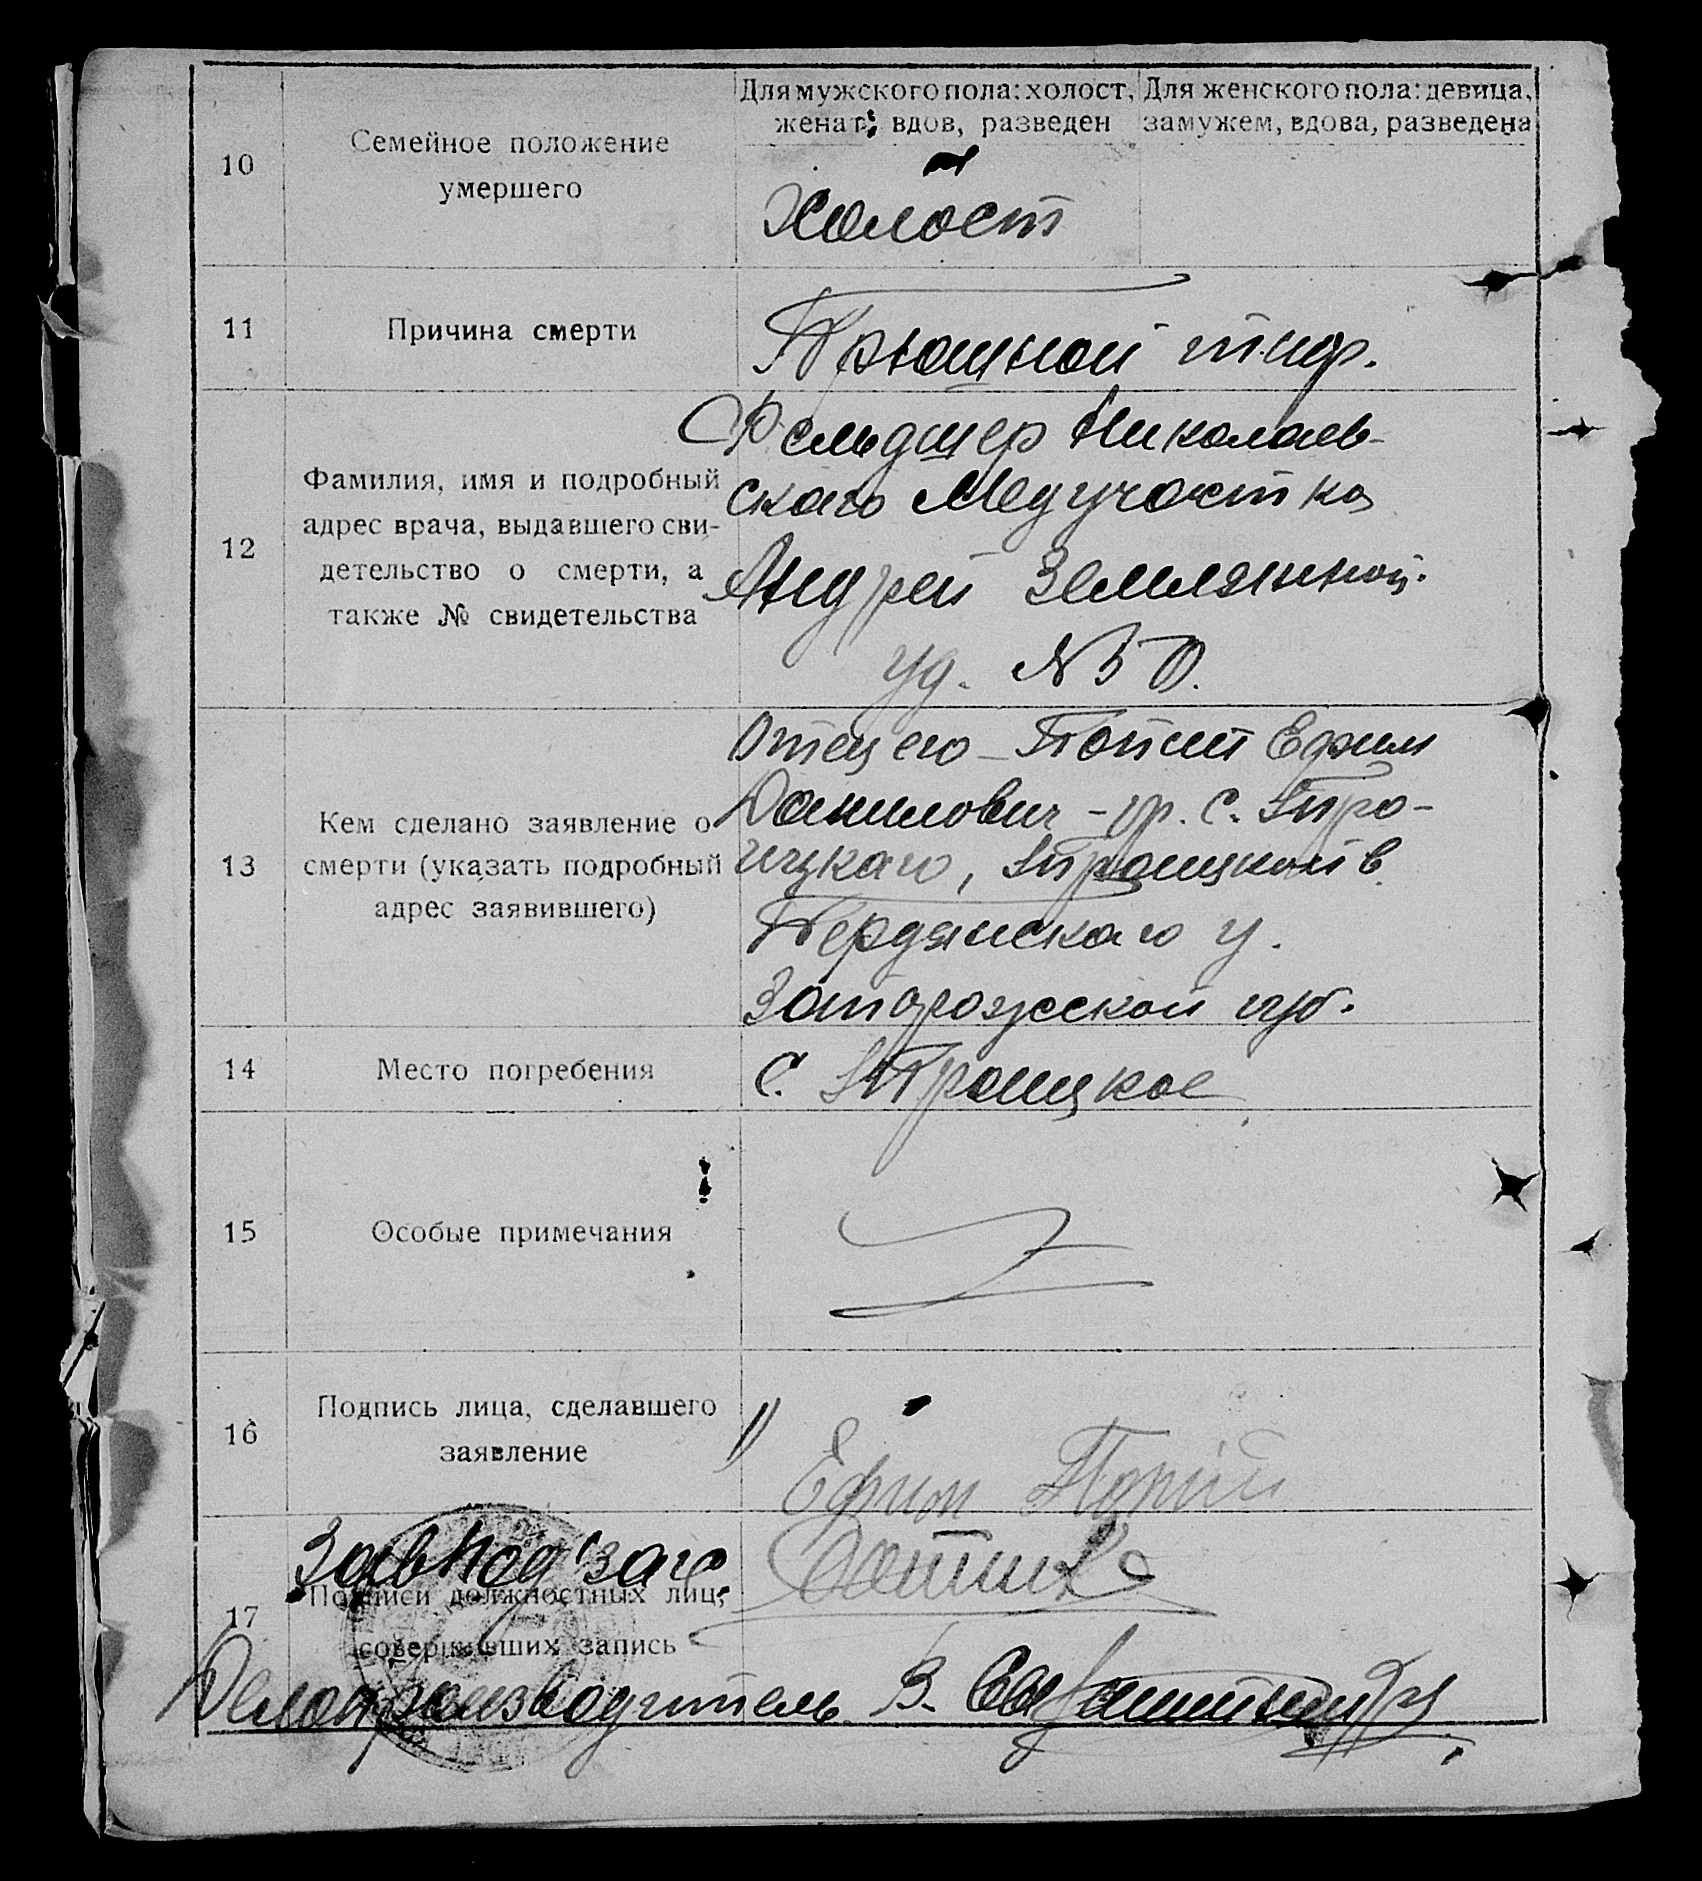 Для мужского пола: холост, женат, вдов, разведен
Для женского пола: девица, замужем, вдова, разведена
10
Семейное положение
умершего
Холост
11
Причина смерти
Брюшной тиф.
12
Фамилия, имя и подробный
адрес врача, выдавшего сви-
детельство о смерти, а
также № свидетельства
Фельдшер Николаев-
ского Медучастка
Андрей Земляной.
уд. №
13
Кем сделано заявление о
смерти (указать подробный
адрес заявившего)
Отец его - Ефим
Данилович - гр. с. Тро-
ицкаго, Троицкой в.
Бердянскаго у.
Запорожской губ.
14
Место погребения
С. Троицкое
15
Особые примечания
16
Подпись лица, сделавшего
заявление
1)
Ефим
17
Подписи должностных лиц,
совершивших запись
Завпод'загс
Делопроизводитель В.